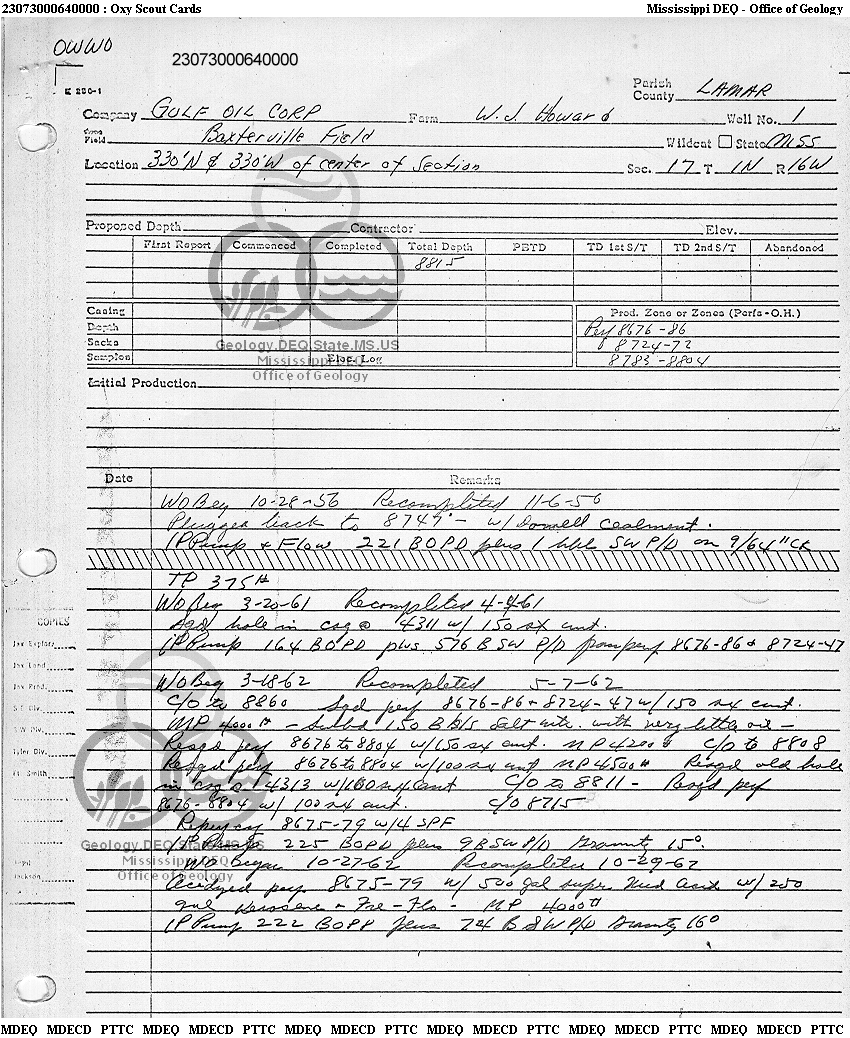 23073000640000 : Oxy Scout Cards Mississippi DEQ - Office of Geology
OWWO
23073000640000
E 250-1
Parish
County LAMAR
Company GULF OIL CORP Farm W.J. Howard Well No. 1
Field Baxterville Field Wildcat State MISS
Location 330'N & 330'W of center of Section Sec. 17 T. 1N R 16W
Proposed Depth Contractor Elev.
First Report Commenced Completed Total Depth PBTD TD 1st S/T TD 2nd S/T Abandoned
8815
Casing Prod. Zone or Zones (Perfs-O.H.)
Depth Perf 8676-86
Sacks 8724-72
Samples Elec. Log 8783-8804
Geology.DEQ.State.MS.US
Mississippi DEQ
Office of Geology
Initial Production
Date Remarks
WO Beg 10-28-56 Recompleted 11-6-56
Plugged back to 8747' - w/ Dowell cealment.
IP Pump & Flow 221 BOPD plus 1 bbl SW P/D on 9/64" CK
TP 375#
WO Beg 3-20-61 Recompleted 4-4-61
Sqd hole in csg @ 4311 w/ 150 sx cmt.
IP Pump 164 BOPD plus 576 B SW P/D from perf 8676-86 & 8724-47
COPIES
Jax Explor.
Jax Land
Jax Prod.
S E Div.
S W Div.
Tyler Div.
Ft. Smith
Jackson
WO Beg 3-18-62 Recompleted 5-7-62
C/O to 8860 Sqd perf 8676-86 & 8724-47 w/ 150 sx cmt.
MP 4000# - Swbd 150 Bbls salt wtr. with very little oil -
Resqd perf 8676 to 8804 w/150 sx cmt. MP 4200# C/O to 8808
Resqd perf 8676 to 8804 w/100 sx cmt MP 4500# Resqd old hole
in csg @ 4313 w/100 sx cmt C/O to 8811 - Resqd perf
8676-8804 w/ 100 sx cmt. C/O 8715
Reperf csg 8675-79 w/4 SPF
IP Pump 225 BOPD plus 9 BSW P/D Gravity 15°
Geology.DEQ.State.MS.US
Mississippi DEQ
Office of Geology
WO Began 10-27-62 Recompleted 10-29-62
Acidized perf 8675-79 w/ 500 gal super Mud Acid w/ 250
gal Kerosene & Fre-Flo - MP 4000#
IP Pump 222 BOPD plus 74 B SW P/D Gravity 16°
MDEQ MDECD PTTC MDEQ MDECD PTTC MDEQ MDECD PTTC MDEQ MDECD PTTC MDEQ MDECD PTTC MDEQ MDECD PTTC